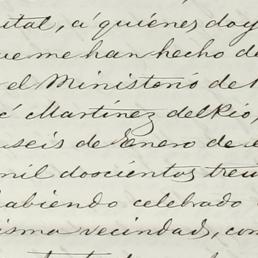 ital, a' quienes doy
ue me han hecho de
el Ministerio de
é Martinez del Rio,
seis de Enero de
mil doscientos trein
habiendo celebrado
isma vecindad, con